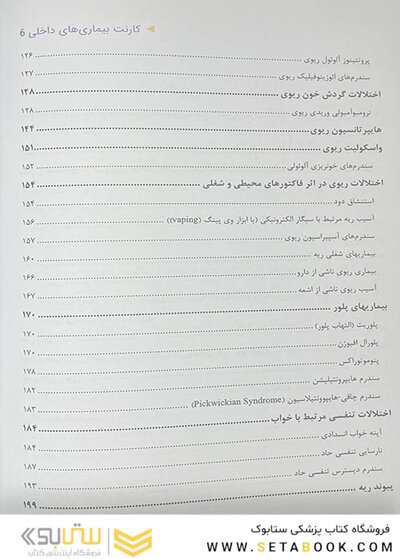 کارنت بیماری‌های داخلی 6
پروتئینوز آلوئول ریوی ۱۲۶
سندرم‌های ائوزینوفیلیک ریوی ۱۲۷
اختلالات گردش خون ریوی ۱۲۸
ترومبوآمبولی وریدی ریوی ۱۲۸
هایپرتانسیون ریوی ۱۴۴
واسکولیت ریوی ۱۵۱
سندرم‌های خونریزی آلوئولی ۱۵۲
اختلالات ریوی در اثر فاکتورهای محیطی و شغلی ۱۵۴
استنشاق دود ۱۵۴
آسیب ریه مرتبط با سیگار الکترونیکی (یا ابزار وی پینگ (vaping)) ۱۵۶
سندرم‌های آسپیراسیون ریوی ۱۵۷
بیماریهای شغلی ریه ۱۶۰
بیماری ریوی ناشی از دارو ۱۶۶
آسیب ریوی ناشی از اشعه ۱۶۷
بیماریهای پلور ۱۷۰
پلوریت (التهاب پلور) ۱۷۰
پلورال افیوژن ۱۷۰
پنوموتوراکس ۱۷۸
سندرم هایپرونتیلیشن ۱۸۲
سندرم چاقی-هایپوونتیلاسیون (Pickwickian Syndrome) ۱۸۳
اختلالات تنفسی مرتبط با خواب ۱۸۴
آپنه خواب انسدادی ۱۸۴
نارسایی تنفسی حاد ۱۸۷
سندرم دیسترس تنفسی حاد ۱۹۳
پیوند ریه ۱۹۹
فروشگاه کتاب پزشکی ستابوک
WWW.SETABOOK.COM
ستابوک
فروشگاه اینترنتی کتاب